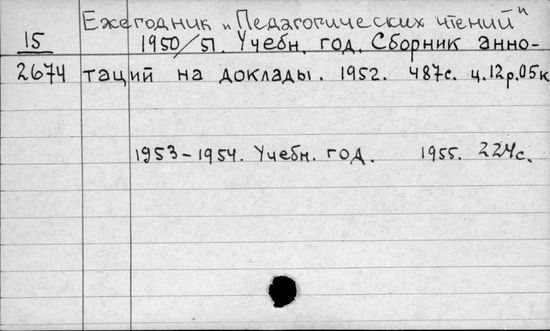 Ежегодник „Педагогических чтений"
15 1950/51. Учебн. год. Сборник анно-
2674 таций на доклады. 1952. 487с. ц.12р.05к
1953-1954. Учебн. год. 1955. 224с.